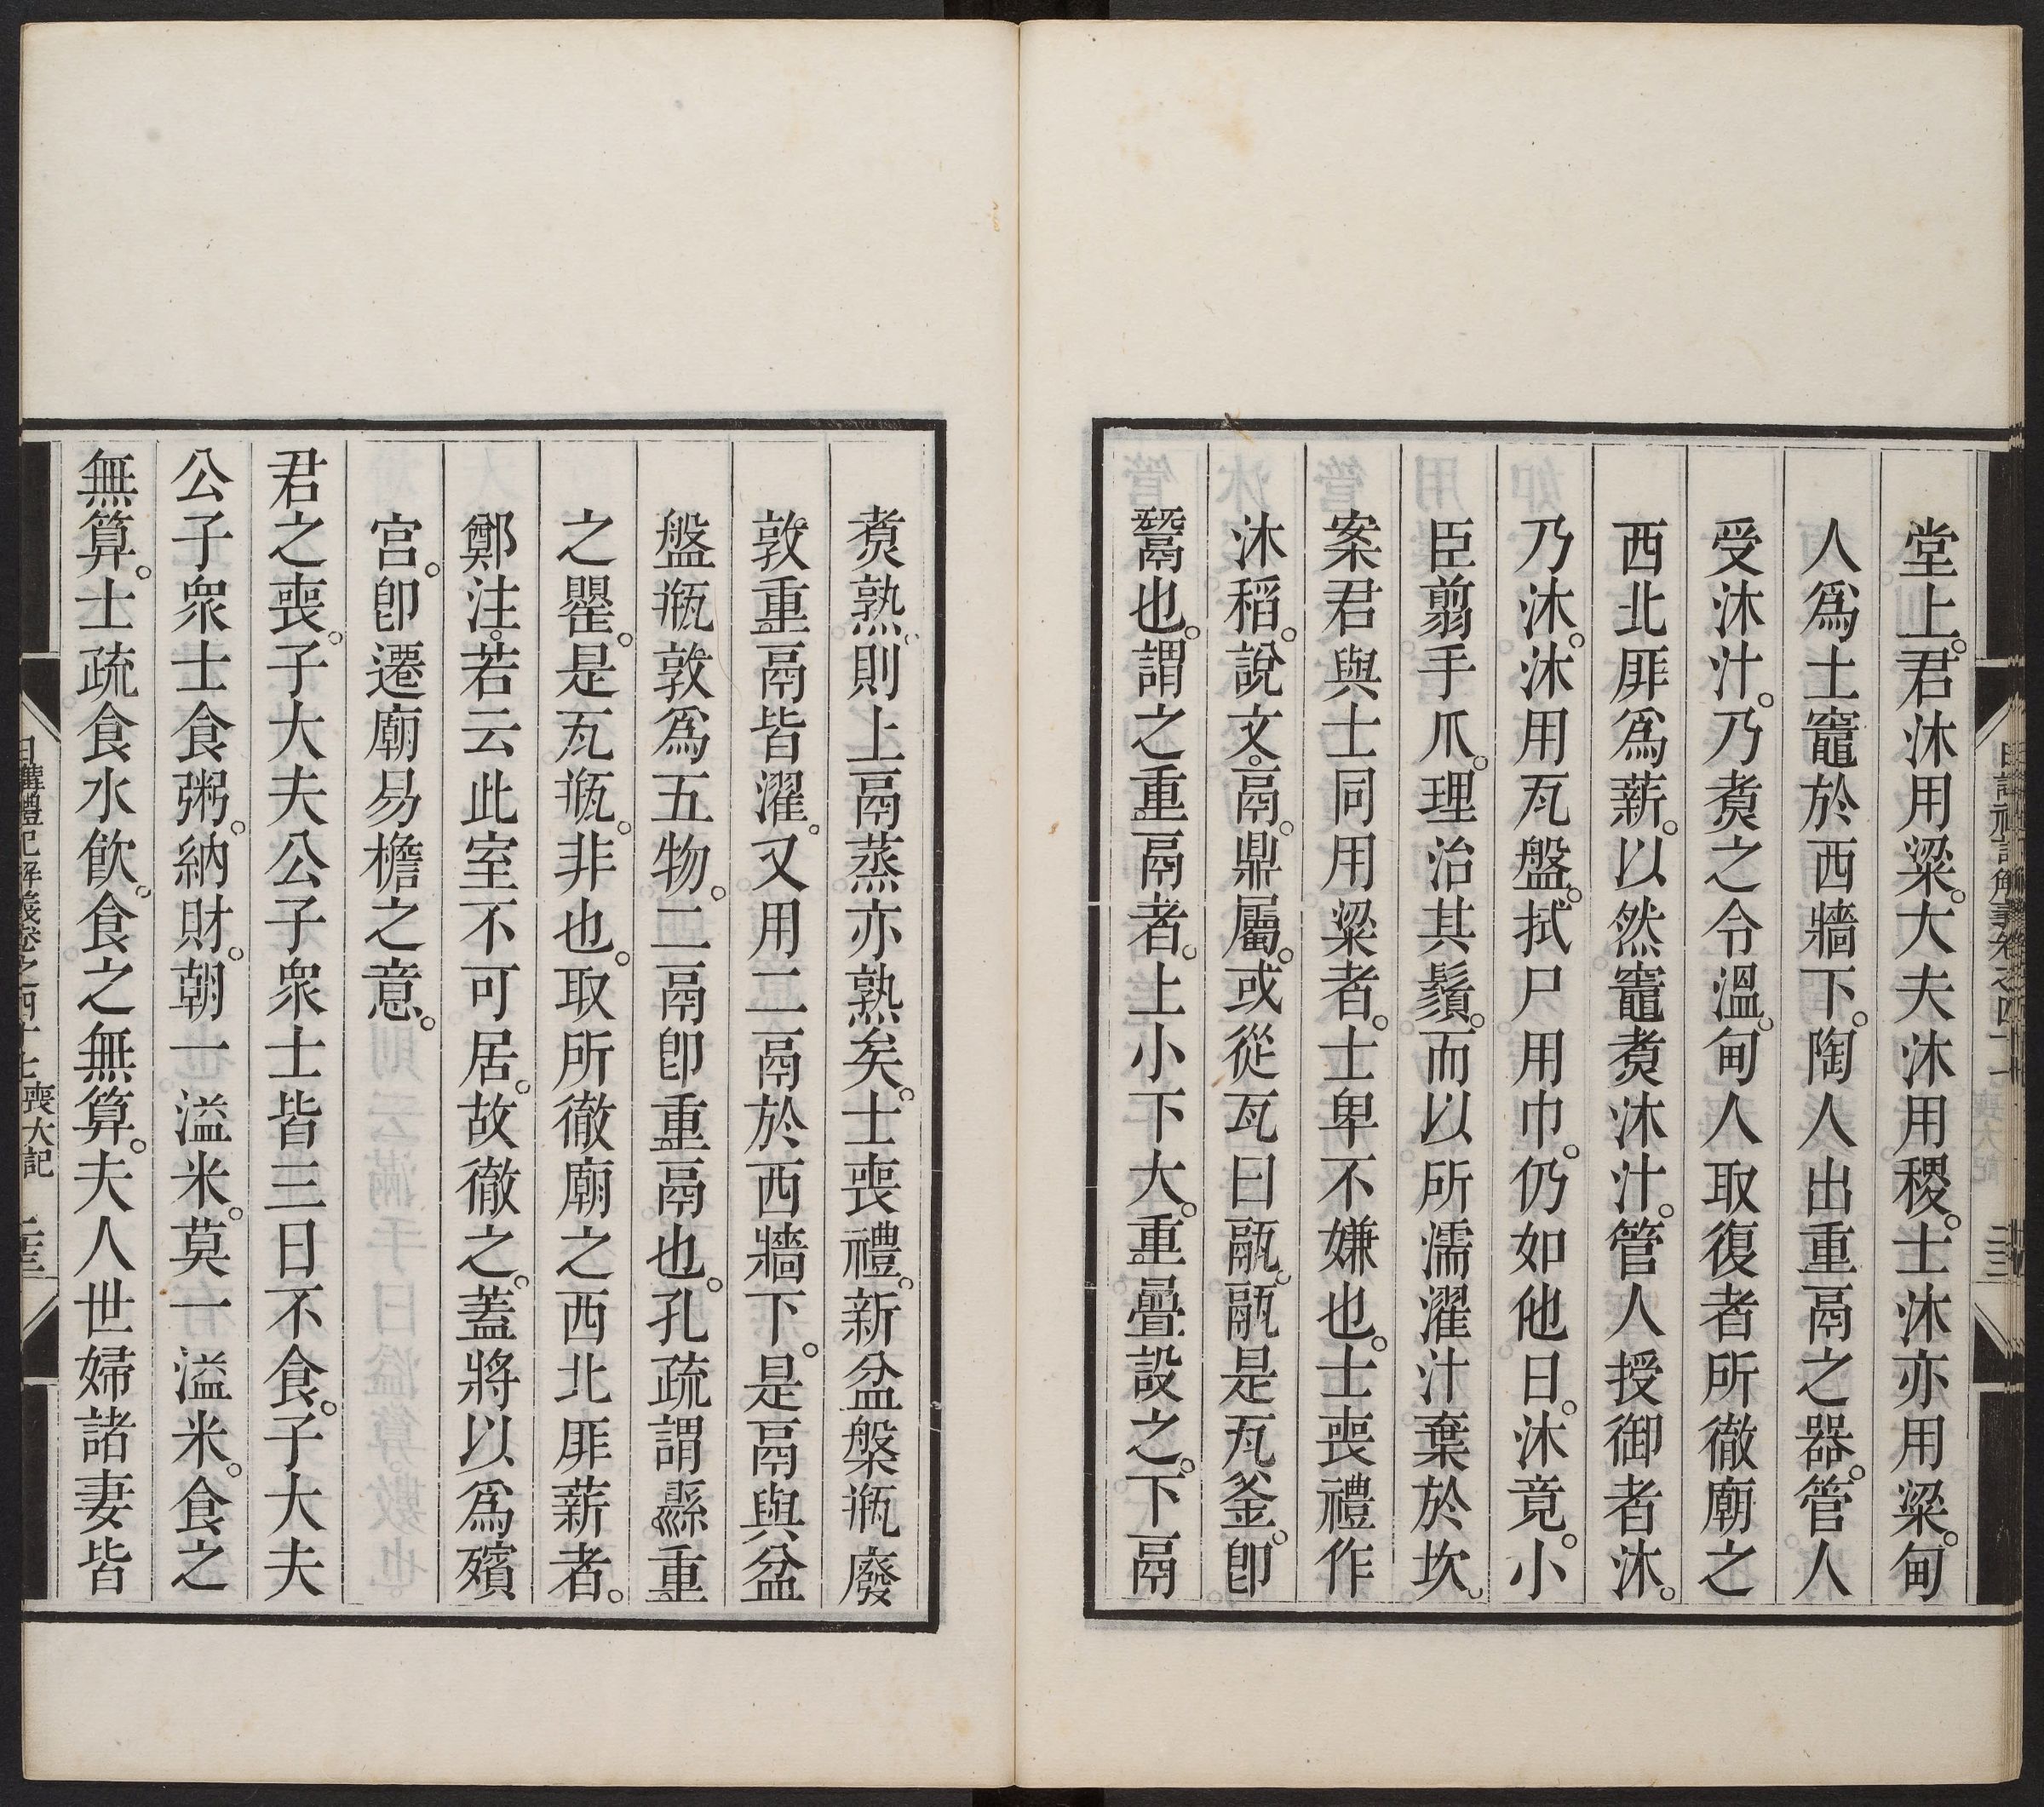 堂上。君沐用粱。大夫沐用稷。士沐亦用粱。甸
人爲土竈於西牆下。陶人出重鬲之器。管人
受沐汁。乃煑之令溫。甸人取復者所徹廟之
西北厞爲薪。以然竈煑沐汁。管人授御者沐。
乃沐。沐用瓦盤。拭尸用巾。仍如他日。沐竟。小
臣翦手爪。理治其鬚。而以所濡濯汁棄於坎。
案君與士同用粱者。士卑不嫌也。士喪禮作
沐稻。說文。鬲。鼎屬。或從瓦曰䰛。䰛是瓦釜。卽
鬵也。謂之重鬲者。上小下大。重疊設之。下鬲
煑熟。則上鬲蒸亦熟矣。士喪禮。新盆槃瓶廢
敦重鬲皆濯。又用二鬲於西牆下。是鬲與盆
盤瓶敦爲五物。二鬲卽重鬲也。孔疏謂縣重
之罌。是瓦瓶。非也。取所徹廟之西北厞薪者。
鄭注。若云此室不可居。故徹之。蓋將以爲殯
宮。卽遷廟易檐之意。
君之喪。子大夫公子衆士皆三日不食。子大夫
公子衆士食粥。納財。朝一溢米。莫一溢米。食之
無算。士疏食水飲。食之無算。夫人世婦諸妻皆
日講禮記解義卷之四十七 喪大記 二三